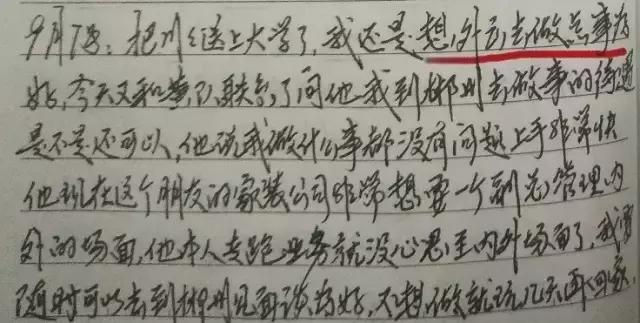 9月7号：把川川送上大学了，我还是想外出去做点事为
好，今天又和黄队联系了问他我到郴州去做事的待遇
是不是还可以，他说我做什么事都没有问题上手非常快
他现在这个朋友的家装公司非常想要一个副总管理内
外的场面，他本人专跑业务就没心思至内外场面了，我
随时可以去到郴州见面谈为好，不想做就玩几天再回家，